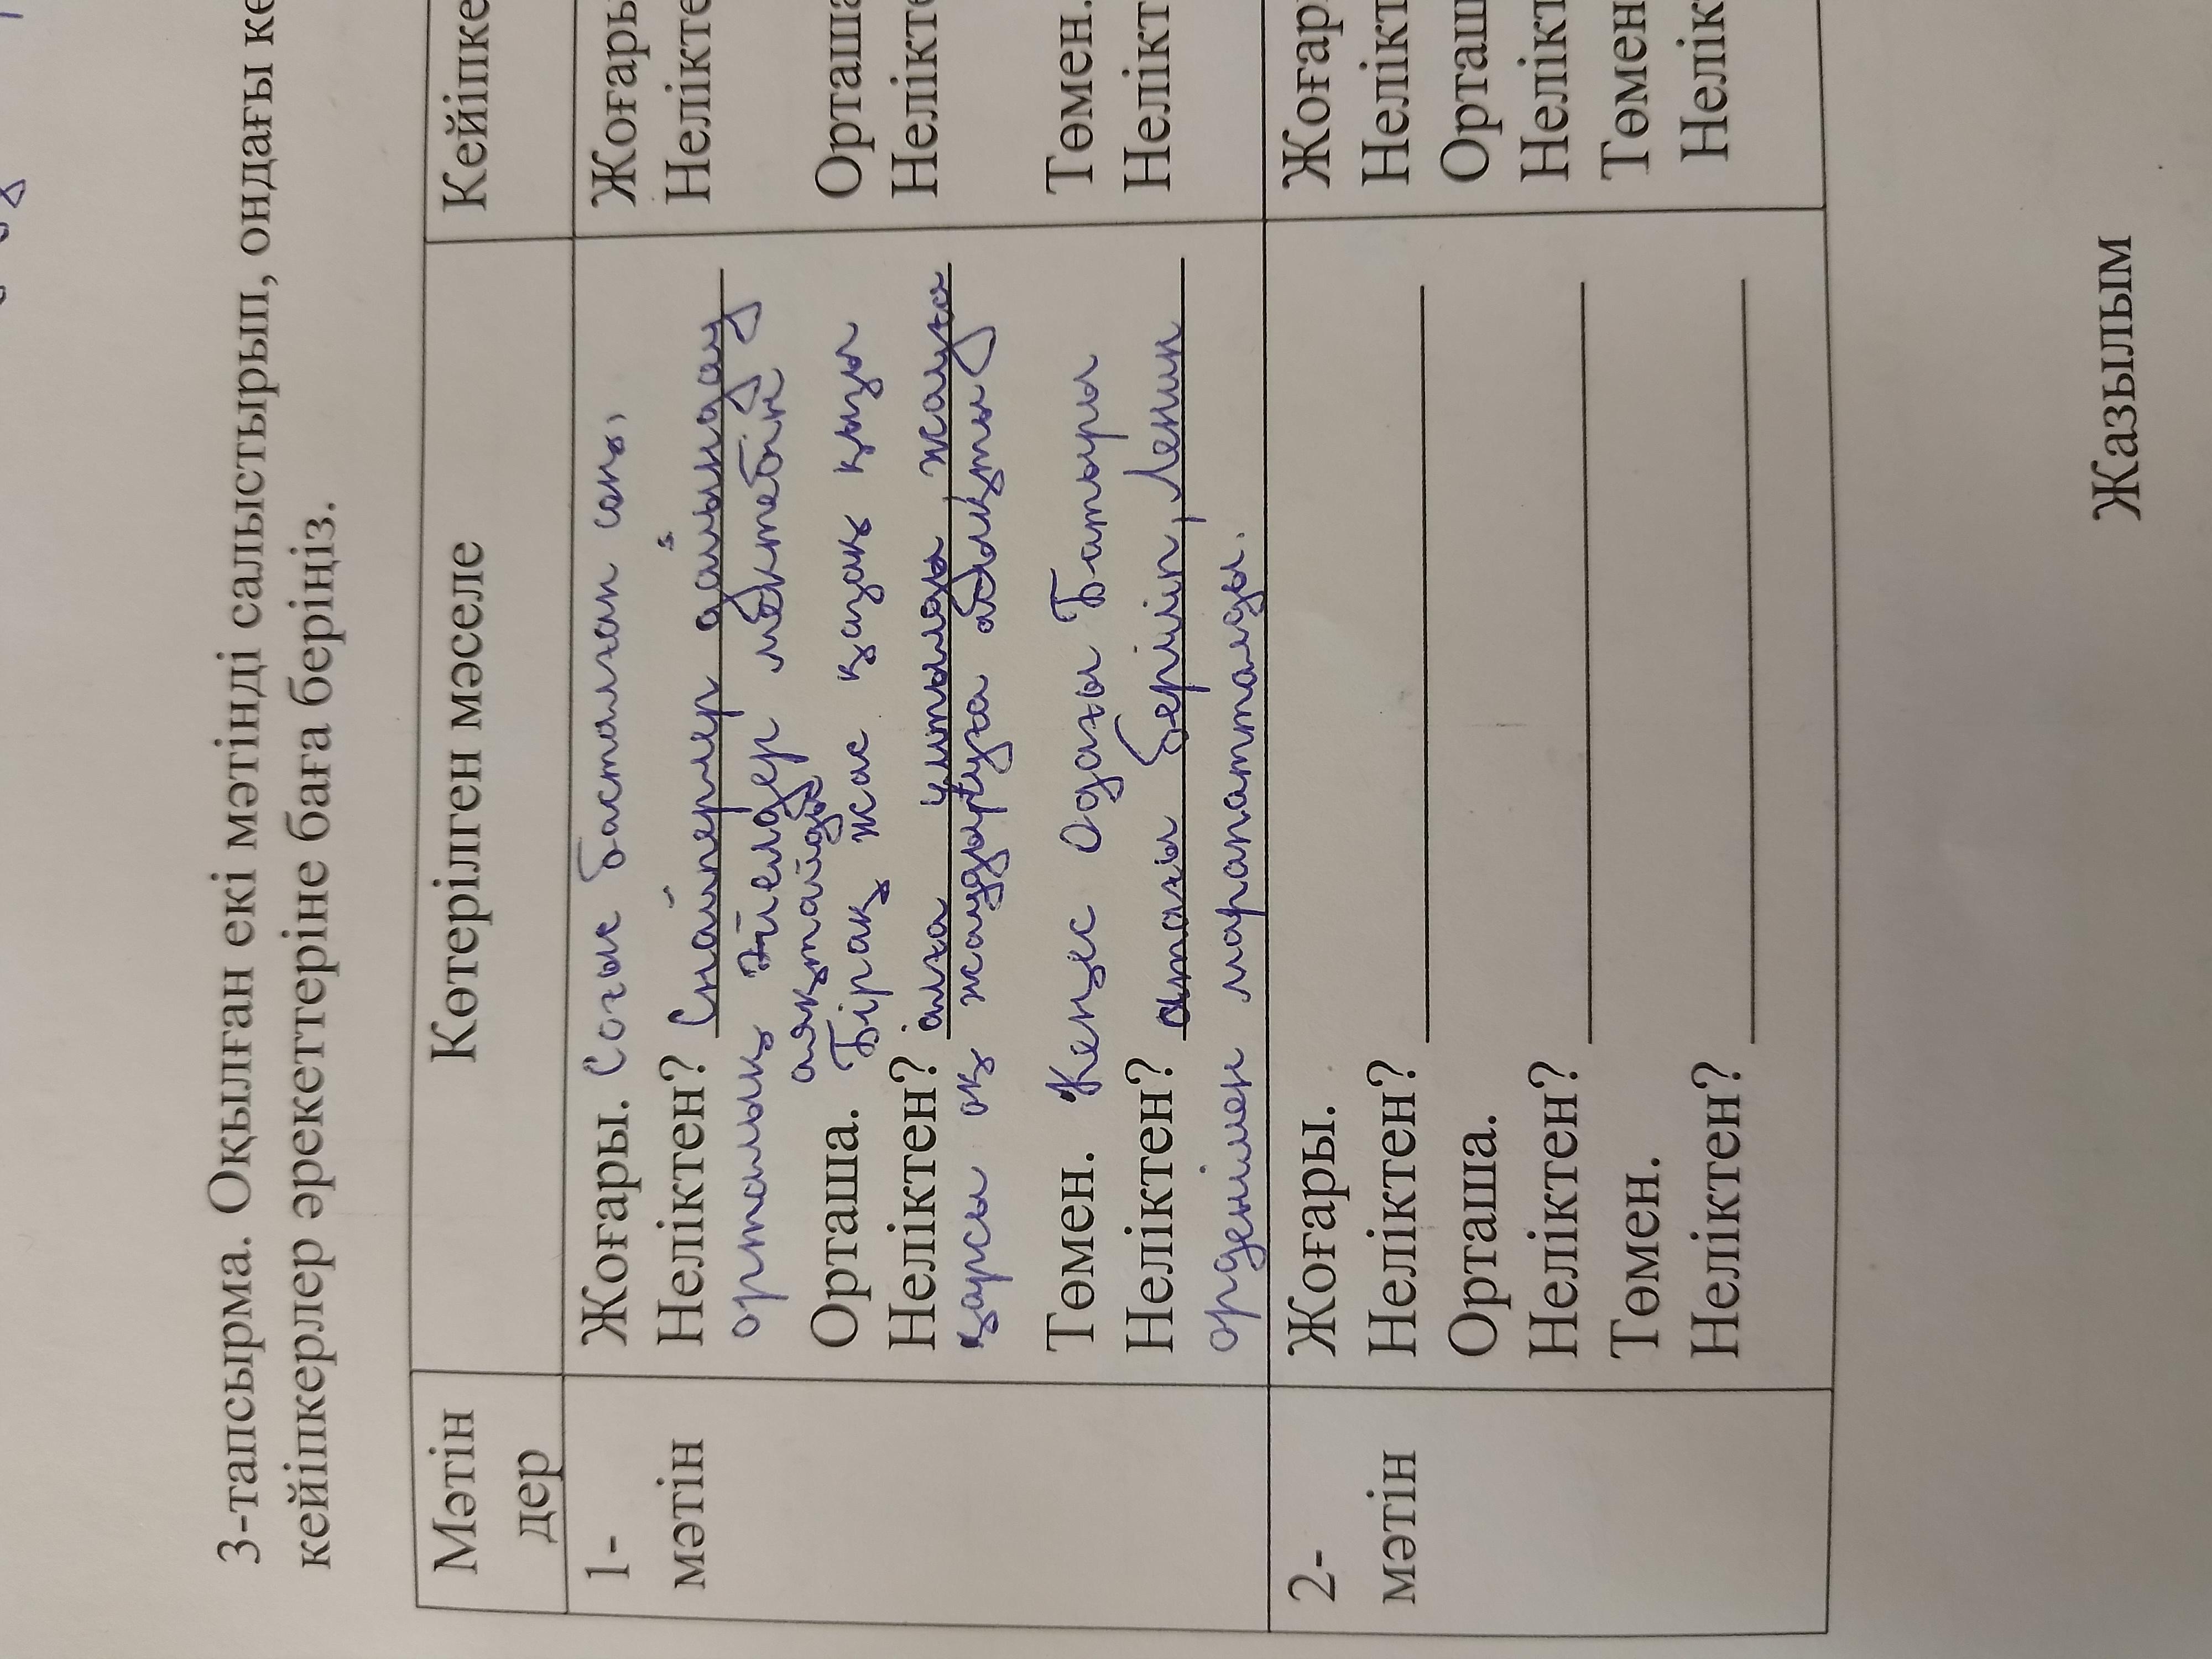 3-тапсырма. Оқылған екі мәтінді салыстырып, ондағы ке
кейіпкерлер әрекеттеріне баға беріңіз.
Мәтін
дер
Көтерілген мәселе
Кейіпке
1-
мәтін
Жоғары. Соғыс басталған соң,
Неліктен? Снайперлер дайындау
орталық әйелдер мектебін
аяқтайды
Орташа. Бірақ жас қазақ қызы
Неліктен? алға ұмтылды, жауға
қарсы оқ жаудыруға
Төмен. Кеңес Одағы Батыры
Неліктен? атағы беріліп, Ленин
орденімен марапатталды.
Жоғары
Неліктe
Орташа
Неліктe
Төмен.
Нелікт
2-
мәтін
Жоғары.
Неліктен?
Орташа.
Неліктен?
Төмен.
Неліктен?
Жоғар
Нелікт
Орташ
Нелікт
Төмен
Нелік
Жазылым